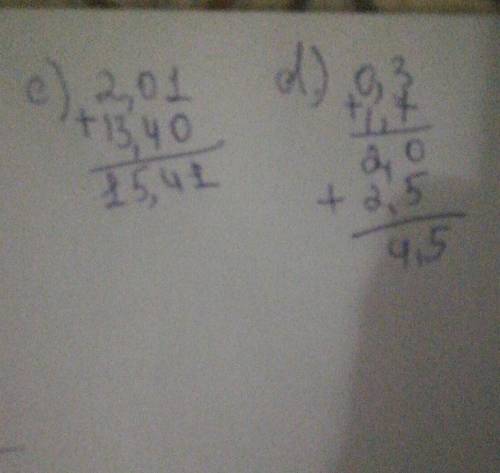 c) 2,01
+ 13,40
15,41
d) 0,3
+ 1,7
2,0
+ 2,5
4,5